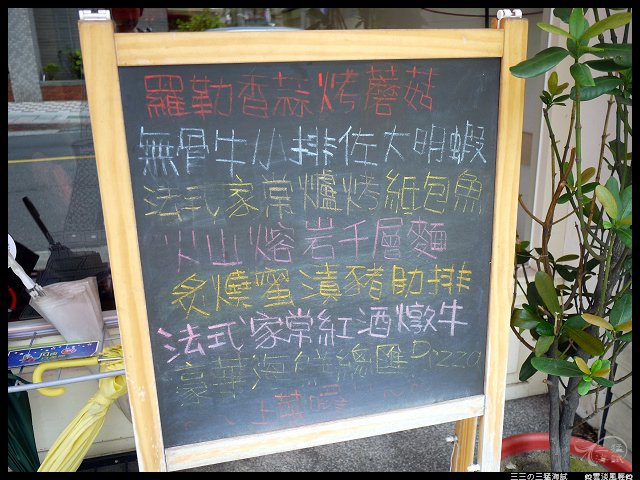 羅勒香蒜烤蘑菇
無骨牛小排佐大明蝦
法式家常爐烤紙包魚
火山熔岩千層麵
炙燒蜜漬豬肋排
法式家常紅酒燉牛
豪華海鮮總匯Pizza
上菜囉
三三の三猛海賊
雲淡風輕